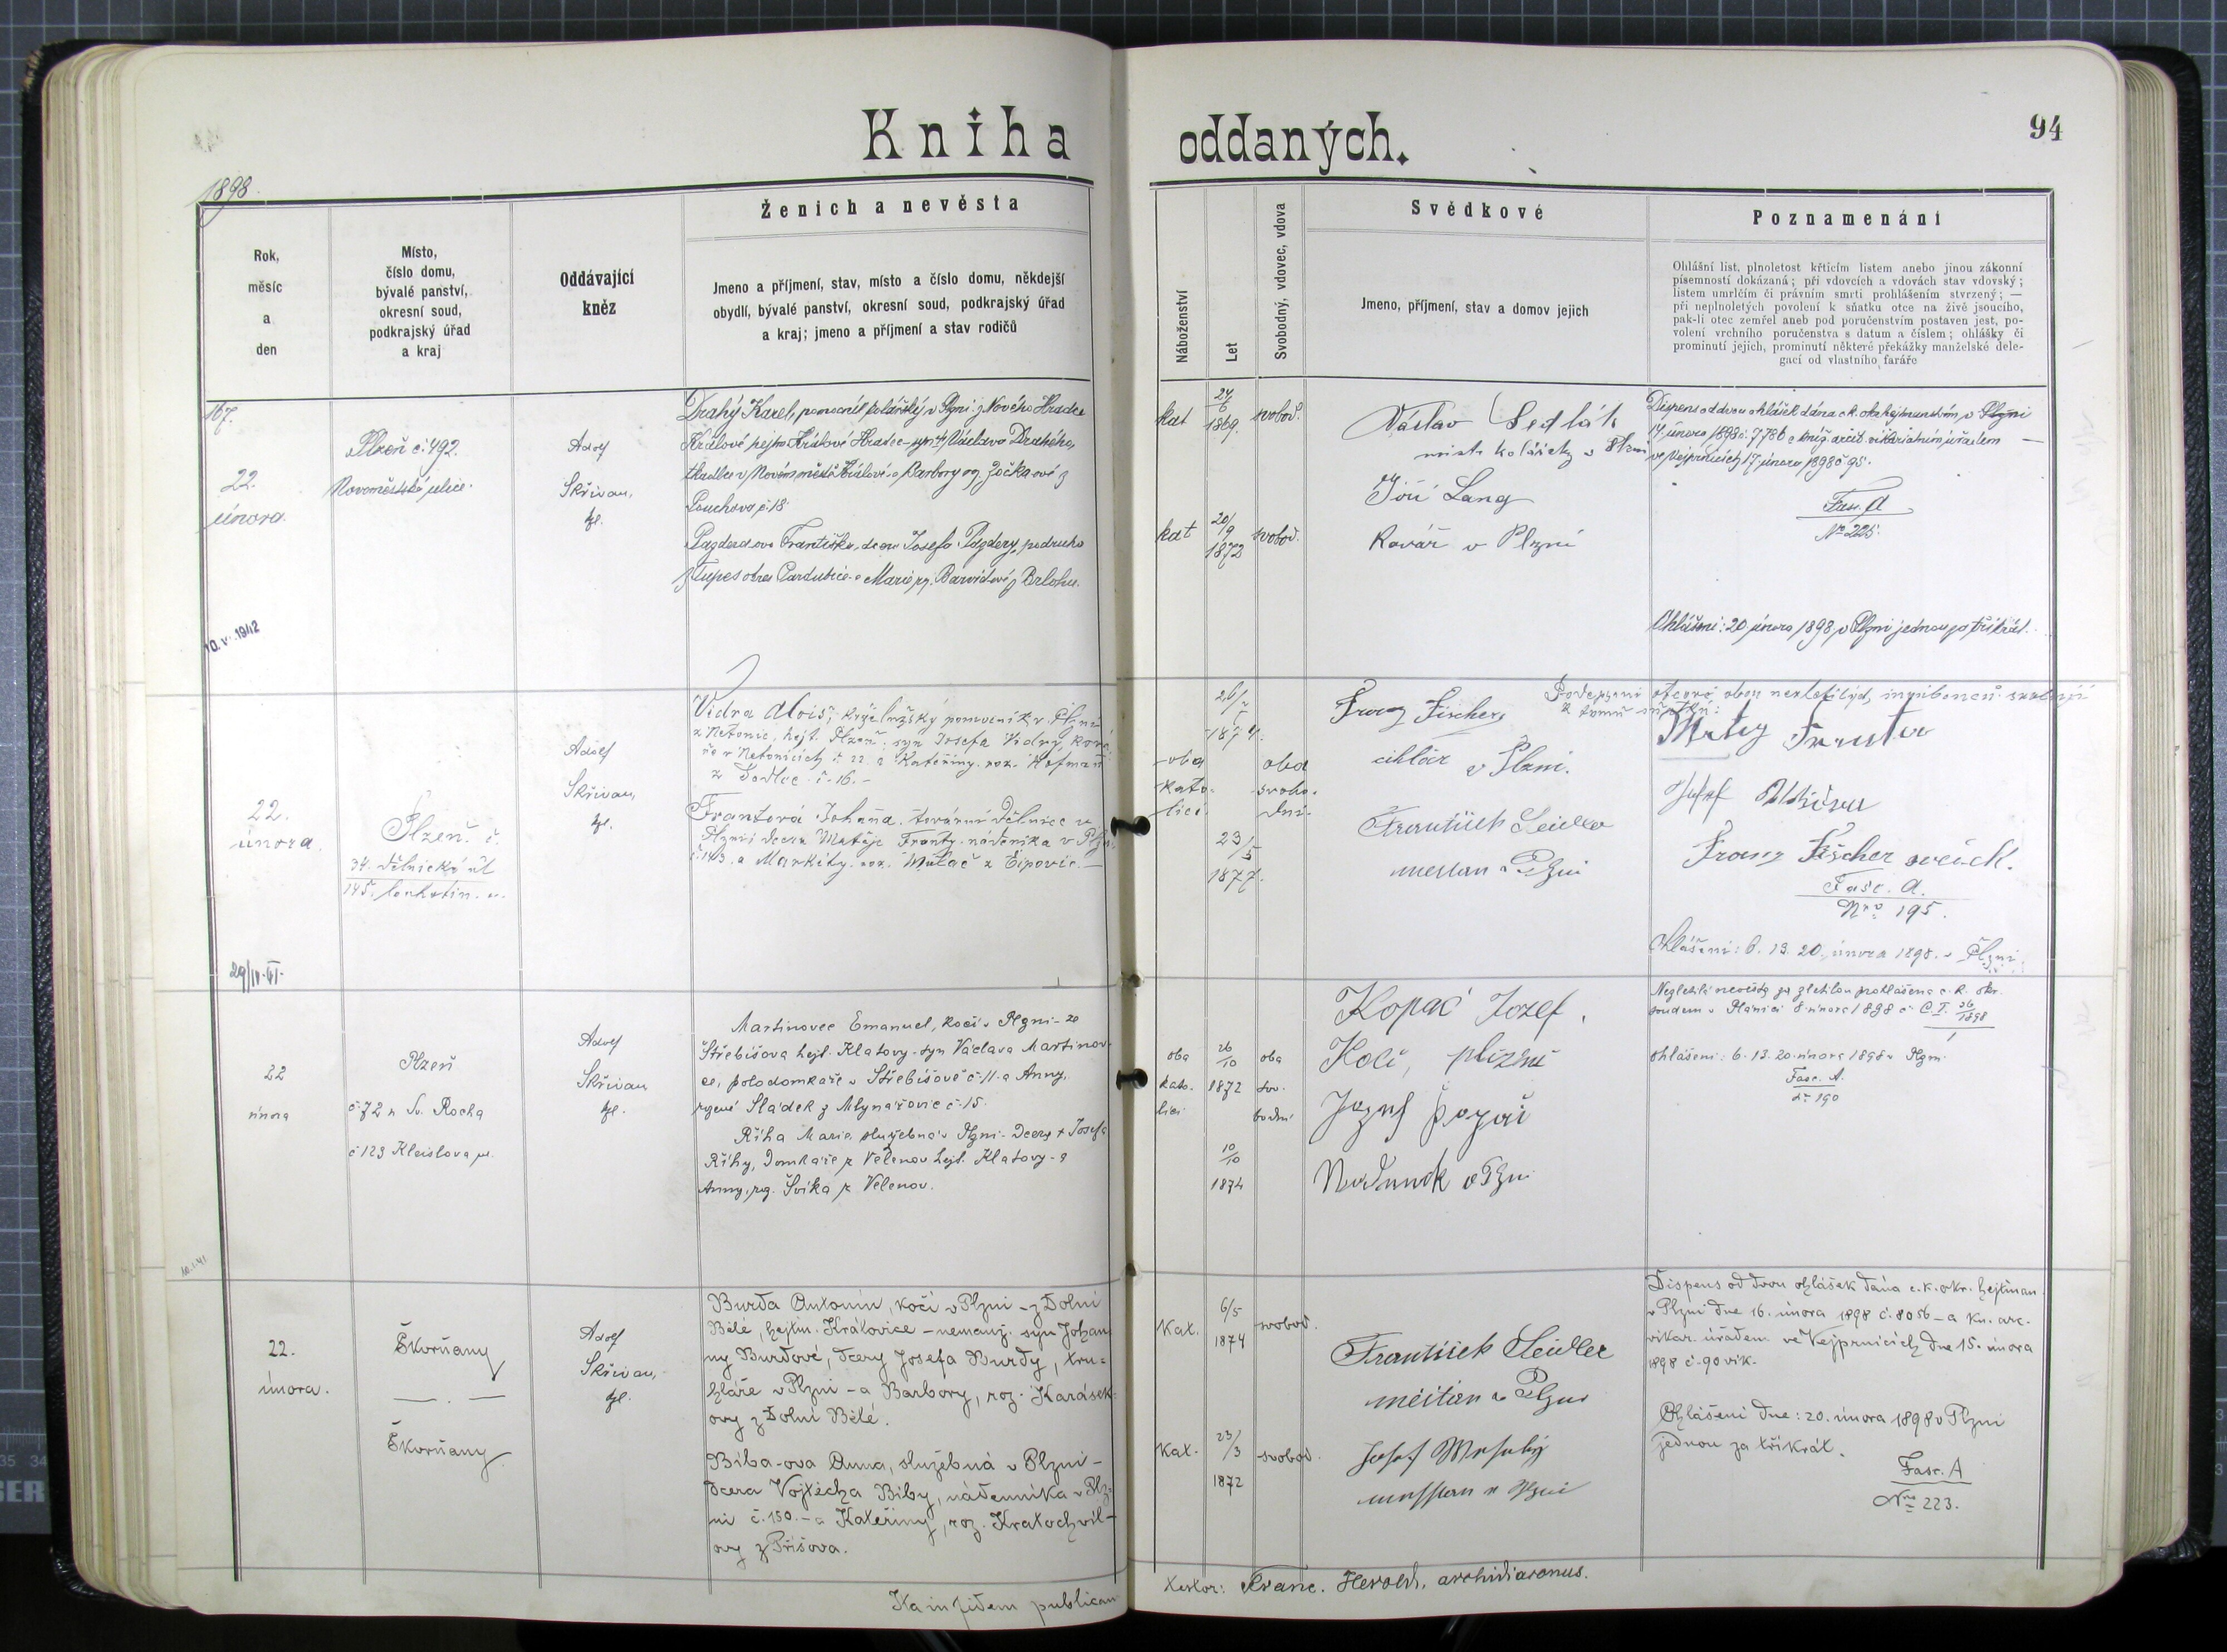 Kniha oddaných.
94
1898.
Rok,
měsíc
a
den
Místo,
číslo domu,
bývalé panství,
okresní soud,
podkrajský úřad
a kraj
Oddávající
kněz
Ženich a nevěsta
Jmeno a příjmení, stav, místo a číslo domu, někdejší
obydlí, bývalé panství, okresní soud, podkrajský úřad
a kraj; jmeno a příjmení a stav rodičů
Náboženství
Let
Svobodný, vdovec, vdova
Svědkové
Jmeno, příjmení, stav a domov jejich
Poznamenání
Ohlášní list, plnoletost křticím listem anebo jinou zákonní
písemností dokázaná; při vdovcích a vdovách stav vdovský;
listem umrlčím či právním smrti prohlášením stvrzený; —
při neplnoletých povolení k sňatku otce na živě jsoucího,
pak-li otec zemřel aneb pod poručenstvím postaven jest, po-
volení vrchního poručenstva s datum a číslem; ohlášky či
prominutí jejich, prominutí některé překážky manželské dele-
gací od vlastního faráře
167.
22.
února.
Plzeň č. 492.
Novoměstská ulice.
Adolf
Skřivan,
kpl.
Drahý Karel, pomocník kolářský v Plzni z Nového Hradce
Králové hejtm Králové Hradec - syn † Václava Drahého,
tkadlce v Novém městě Králové a Barbory roz. Zočkaové z
Pouchova č. 18.
Pazderova Františka, dcera Josefa Pazdery, podruha
z Tupes okres Pardubice a Marie roz. Barvídové z Brlohu.
kat
24
6
1869.
svobod.
kat
20/9
1873
svobod.
Václav Sedlák
mistr kolářský v Plzni
Jiří Lang
Kovář v Plzni
Dispens od dvou ohlášek dána c. k. okr. hejtmanstvím v Plzni
14. února 1898 č. 7786 a kníž. arcib. vikariatním úřadem
ve Vejprnicích 17. února 1898 č. 95.
Fasc. A
No 225.
Ohlášeni: 20 února 1898 v Plzni jednou za třikrát.
10. V. 1942
22.
února.
Plzeň č.
34. Dělnická ul.
145. Lochotín. u.
Adolf
Skřivan,
kpl.
Vidra Alois, pomocník v Plzni
z Netonic, hejt. Plzeň, syn Josefa Vidry, ková-
ře v Netonicích č. 22. a Kateřiny roz. Hofman
z č. 16. -
Frantová Johana, tovární dělnice v
Plzni, dcera Matěje Franty, nádeníka v Plzni
č. 143. a Markéty roz. Mulač z Ejpovic. -
oba
kato-
líci.
26/7
1874.
23/5
1877.
oba
svobo-
dní.
Franz Fischer,
cihlář v Plzni.
František Seidler
mešťan v Plzni
Franz Fischer svědek.
Fasc. A.
Nro 195.
Ohlášeni: 6. 13. 20. února 1898. v Plzni.
29/IV. VI.
22
února
Plzeň
č. 72 u Sv. Rocha
č. 129 Kleislova ul.
Adolf
Skřivan
kpl.
Martinovec Emanuel, kočí v Plzni - ze
Střebišova hejt. Klatovy - syn Václava Martinov-
ce, polodomkáře v Střebišově č. 11. a Anny,
rozené Sládek z Mlynářovic č. 15.
Říha Marie, služebná v Plzni - Dcera † Josefa
Říhy, Domkáře z Velenov hejt. Klatovy - a
Anny, roz. Švíka z Velenov.
oba
kato-
líci
26
10
1872
10
10
1874
oba
svo-
bodní
Kopač Jozef.
Kočí, plzni
Nezletilá nevěsta za zletilou prohlášena c. k. okr.
soudem v Plánici 8. února 1898 č. C. I. 26/1898
ohlášeni: 6. 13. 20. února 1898 v Plzni
Fasc. A.
No 190
10. I. 41
22.
února.
Škvrňany
Škvrňany.
Adolf
Skřivan,
kpl.
Burda Antonín, kočí v Plzni - z Dolní
Bělé, hejtm. Kralovice - nemanž. syn Johan-
ny Burdové, dcery Josefa Burdy, tru-
hláře v Plzni - a Barbory, roz. Karásek-
ovy z Dolní Bělé.
Biba-ova Anna, služebná v Plzni -
Dcera Vojtěcha Biby, nádenníka v Plz-
ni č. 150. - a Kateřiny, roz. Kratochvíl-
ovy z Příšova.
Kat.
6/5
1874
svobod.
Kat.
23/3
1872
svobod.
František Seidler
měšťan v Plzni
Dispens od dvou ohlášek dána c. k. okr. hejtman.
v Plzni dne 16. února 1898 č. 8056 - a kn. arc.
vikar. úřadem ve Vejprnicích dne 15. února
1898 č. 90 vik.
Ohlášeni dne: 20. února 1898 v Plzni
jednou za třikrát.
Fasc. A
Nro 223.
Ita in fidem publicam
testor: Franc. Herold, archidiaconus.